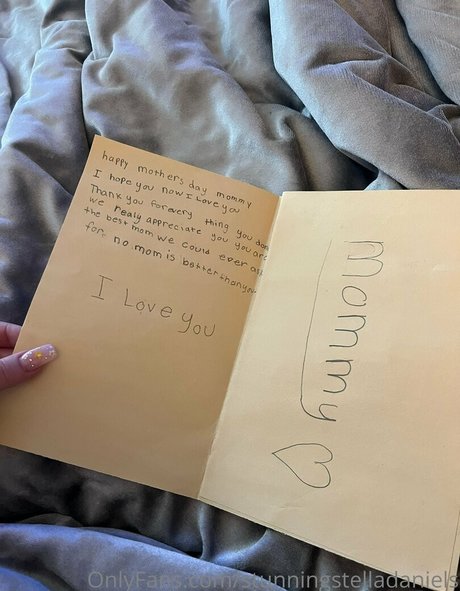 happy mothers day mommy
I hope you now I Love you
Thank you for every thing you don
we realy appreciate you you are
the best mom we could ever ask
for. no mom is better than you
I Love you
Mommy
OnlyFans.com/stunningstelladaniels